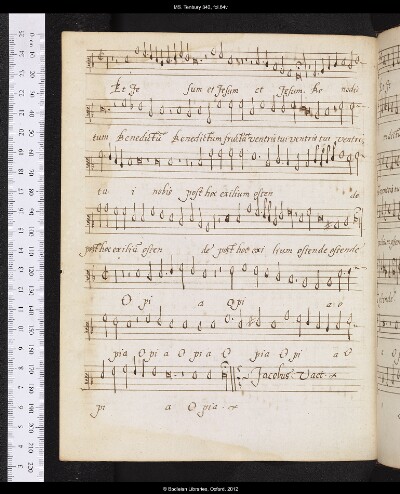 MS. Tenbury 340, fol.84v
Et Je sum et Jesum et Jesum. be nedic
tum benedictū benedictum fructū ventris tui ventris tui ventri
ta i nobis post hoc exilium osten de
post hoc exiliū osten de post hoc exi lium ostende ostende
O pi a O pi a o
pia O pi a O pi a O pia O pi a O
Jacobus Vaet.
pi a O pi a
© Bodleian Libraries, Oxford, 2012